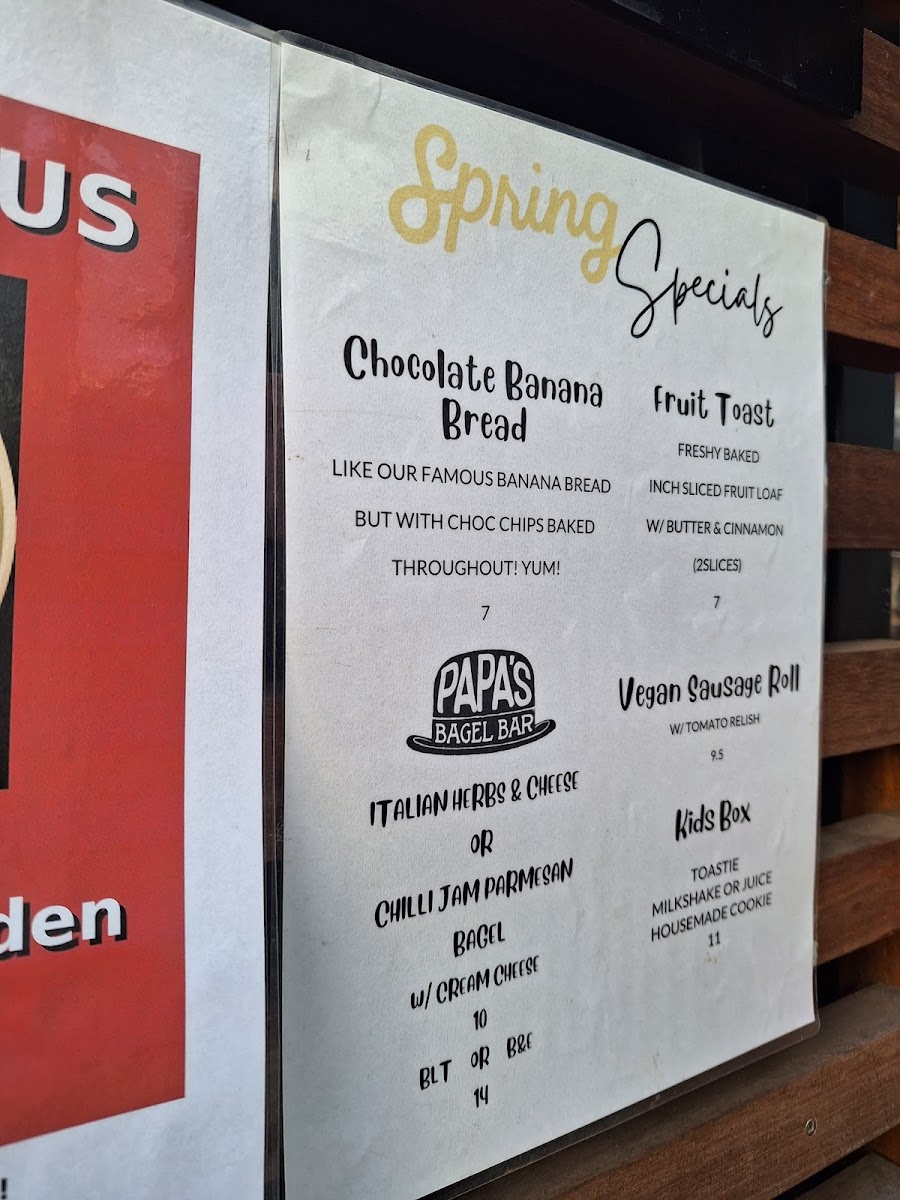 US
den
!
Spring
Specials
Chocolate Banana
Bread
LIKE OUR FAMOUS BANANA BREAD
BUT WITH CHOC CHIPS BAKED
THROUGHOUT! YUM!
7
PAPA'S
BAGEL BAR
ITALIAN HERBS & CHEESE
OR
CHILLI JAM PARMESAN
BAGEL
W/ CREAM CHEESE
10
BLT OR B&E
14
Fruit Toast
FRESHY BAKED
INCH SLICED FRUIT LOAF
W/ BUTTER & CINNAMON
(2SLICES)
7
Vegan Sausage Roll
W/ TOMATO RELISH
9.5
Kids Box
TOASTIE
MILKSHAKE OR JUICE
HOUSEMADE COOKIE
11